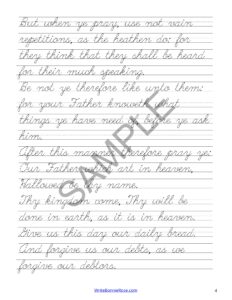 But when ye pray, use not vain
repetitions, as the heathen do: for
they think that they shall be heard
for their much speaking.
Be not ye therefore like unto them:
for your Father knoweth what
things ye have need of, before ye ask
him.
After this manner therefore pray ye:
Our Father which art in heaven,
Hallowed be thy name.
Thy kingdom come, Thy will be
done in earth, as it is in heaven.
Give us this day our daily bread.
And forgive us our debts, as we
forgive our debtors.
SAMPLE
WriteBonnieRose.com
4